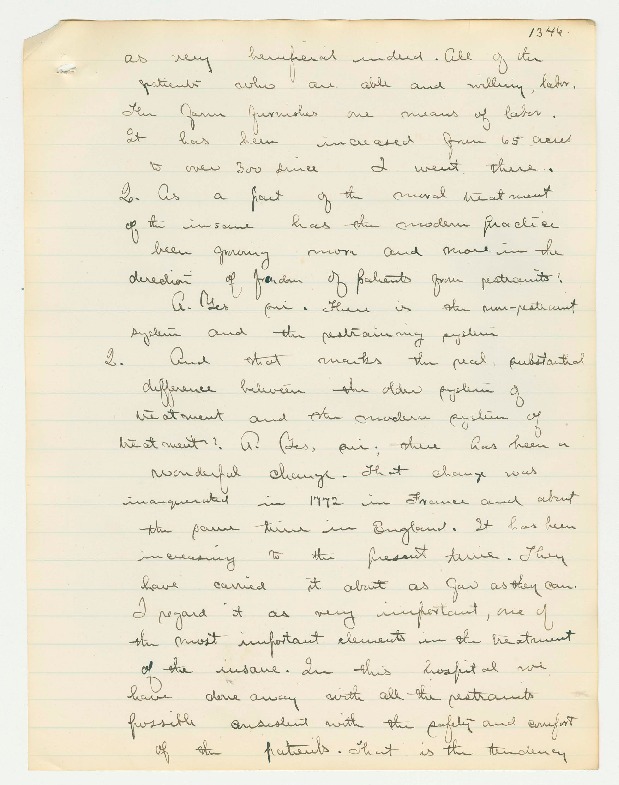 1346.
as very beneficial indeed. All of the
patients who are able and willing, labor.
The farm furnishes one means of labor.
It has been increased from 65 acres
to over 300 since I went there.
Q. As a part of the moral treatment
of the insane has the modern practice
been growing more and more in the
direction of freedom of patients from restraints?
A. Yes sir. There is the non-restraint
system and the restraining system
Q. And that marks the real substantial
difference between the older system of
treatment and the modern system of
treatment? A. Yes, sir; there has been a
wonderful change. That change was
inaugerated in 1772 in France and about
the same time in England. It has been
increasing to the present time. They
have carried it about as far as they can.
I regard it as very important, one of
the most important elements in the treatment
of the insane. In this hospital we
have done away with all the restraints
possible consistent with the safety and comfort
of the patients. That is the tendency